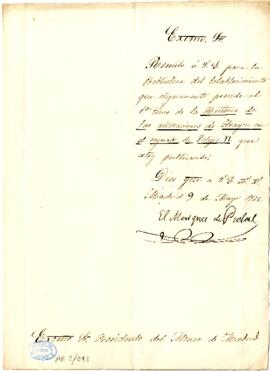 Excmo. Sr.
Remito á V.E. para la
Biblioteca del Establecimiento
que dignamente preside el
1er tomo de la Historia de
las alteraciones de Aragon en
el reinado de Felipe II que
estoy publicando.
Dios gue á V.E. ms. as.
Madrid 9 de Mayo 1862
El Marques de Pidal
Excmo Sr. Presidente del Ateneo de Madrid